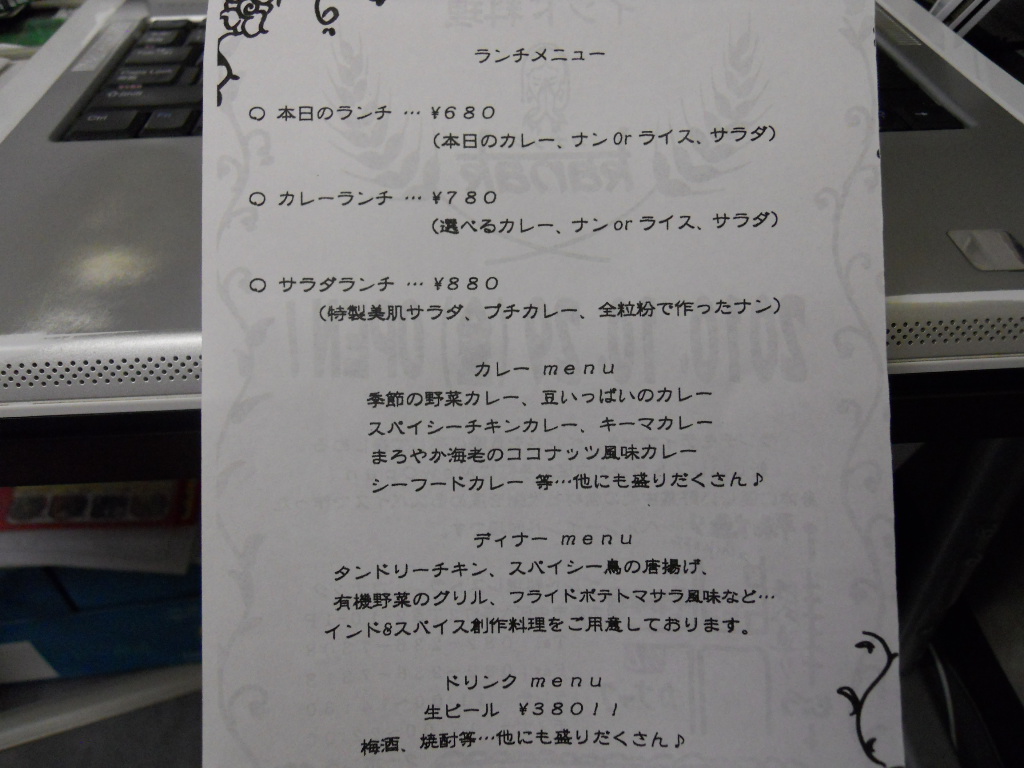 ランチメニュー
○ 本日のランチ … ¥680
(本日のカレー、ナン or ライス、サラダ)
○ カレーランチ … ¥780
(選べるカレー、ナン or ライス、サラダ)
○ サラダランチ … ¥880
(特製美肌サラダ、プチカレー、全粒粉で作ったナン)
カレー menu
季節の野菜カレー、豆いっぱいのカレー
スパイシーチキンカレー、キーマカレー
まろやか海老のココナッツ風味カレー
シーフードカレー 等…他にも盛りだくさん♪
ディナー menu
タンドリーチキン、スパイシー鳥の唐揚げ、
有機野菜のグリル、フライドポテトマサラ風味など…
インド&スパイス創作料理をご用意しております。
ドリンク menu
生ビール ¥380!!
梅酒、焼酎等…他にも盛りだくさん♪